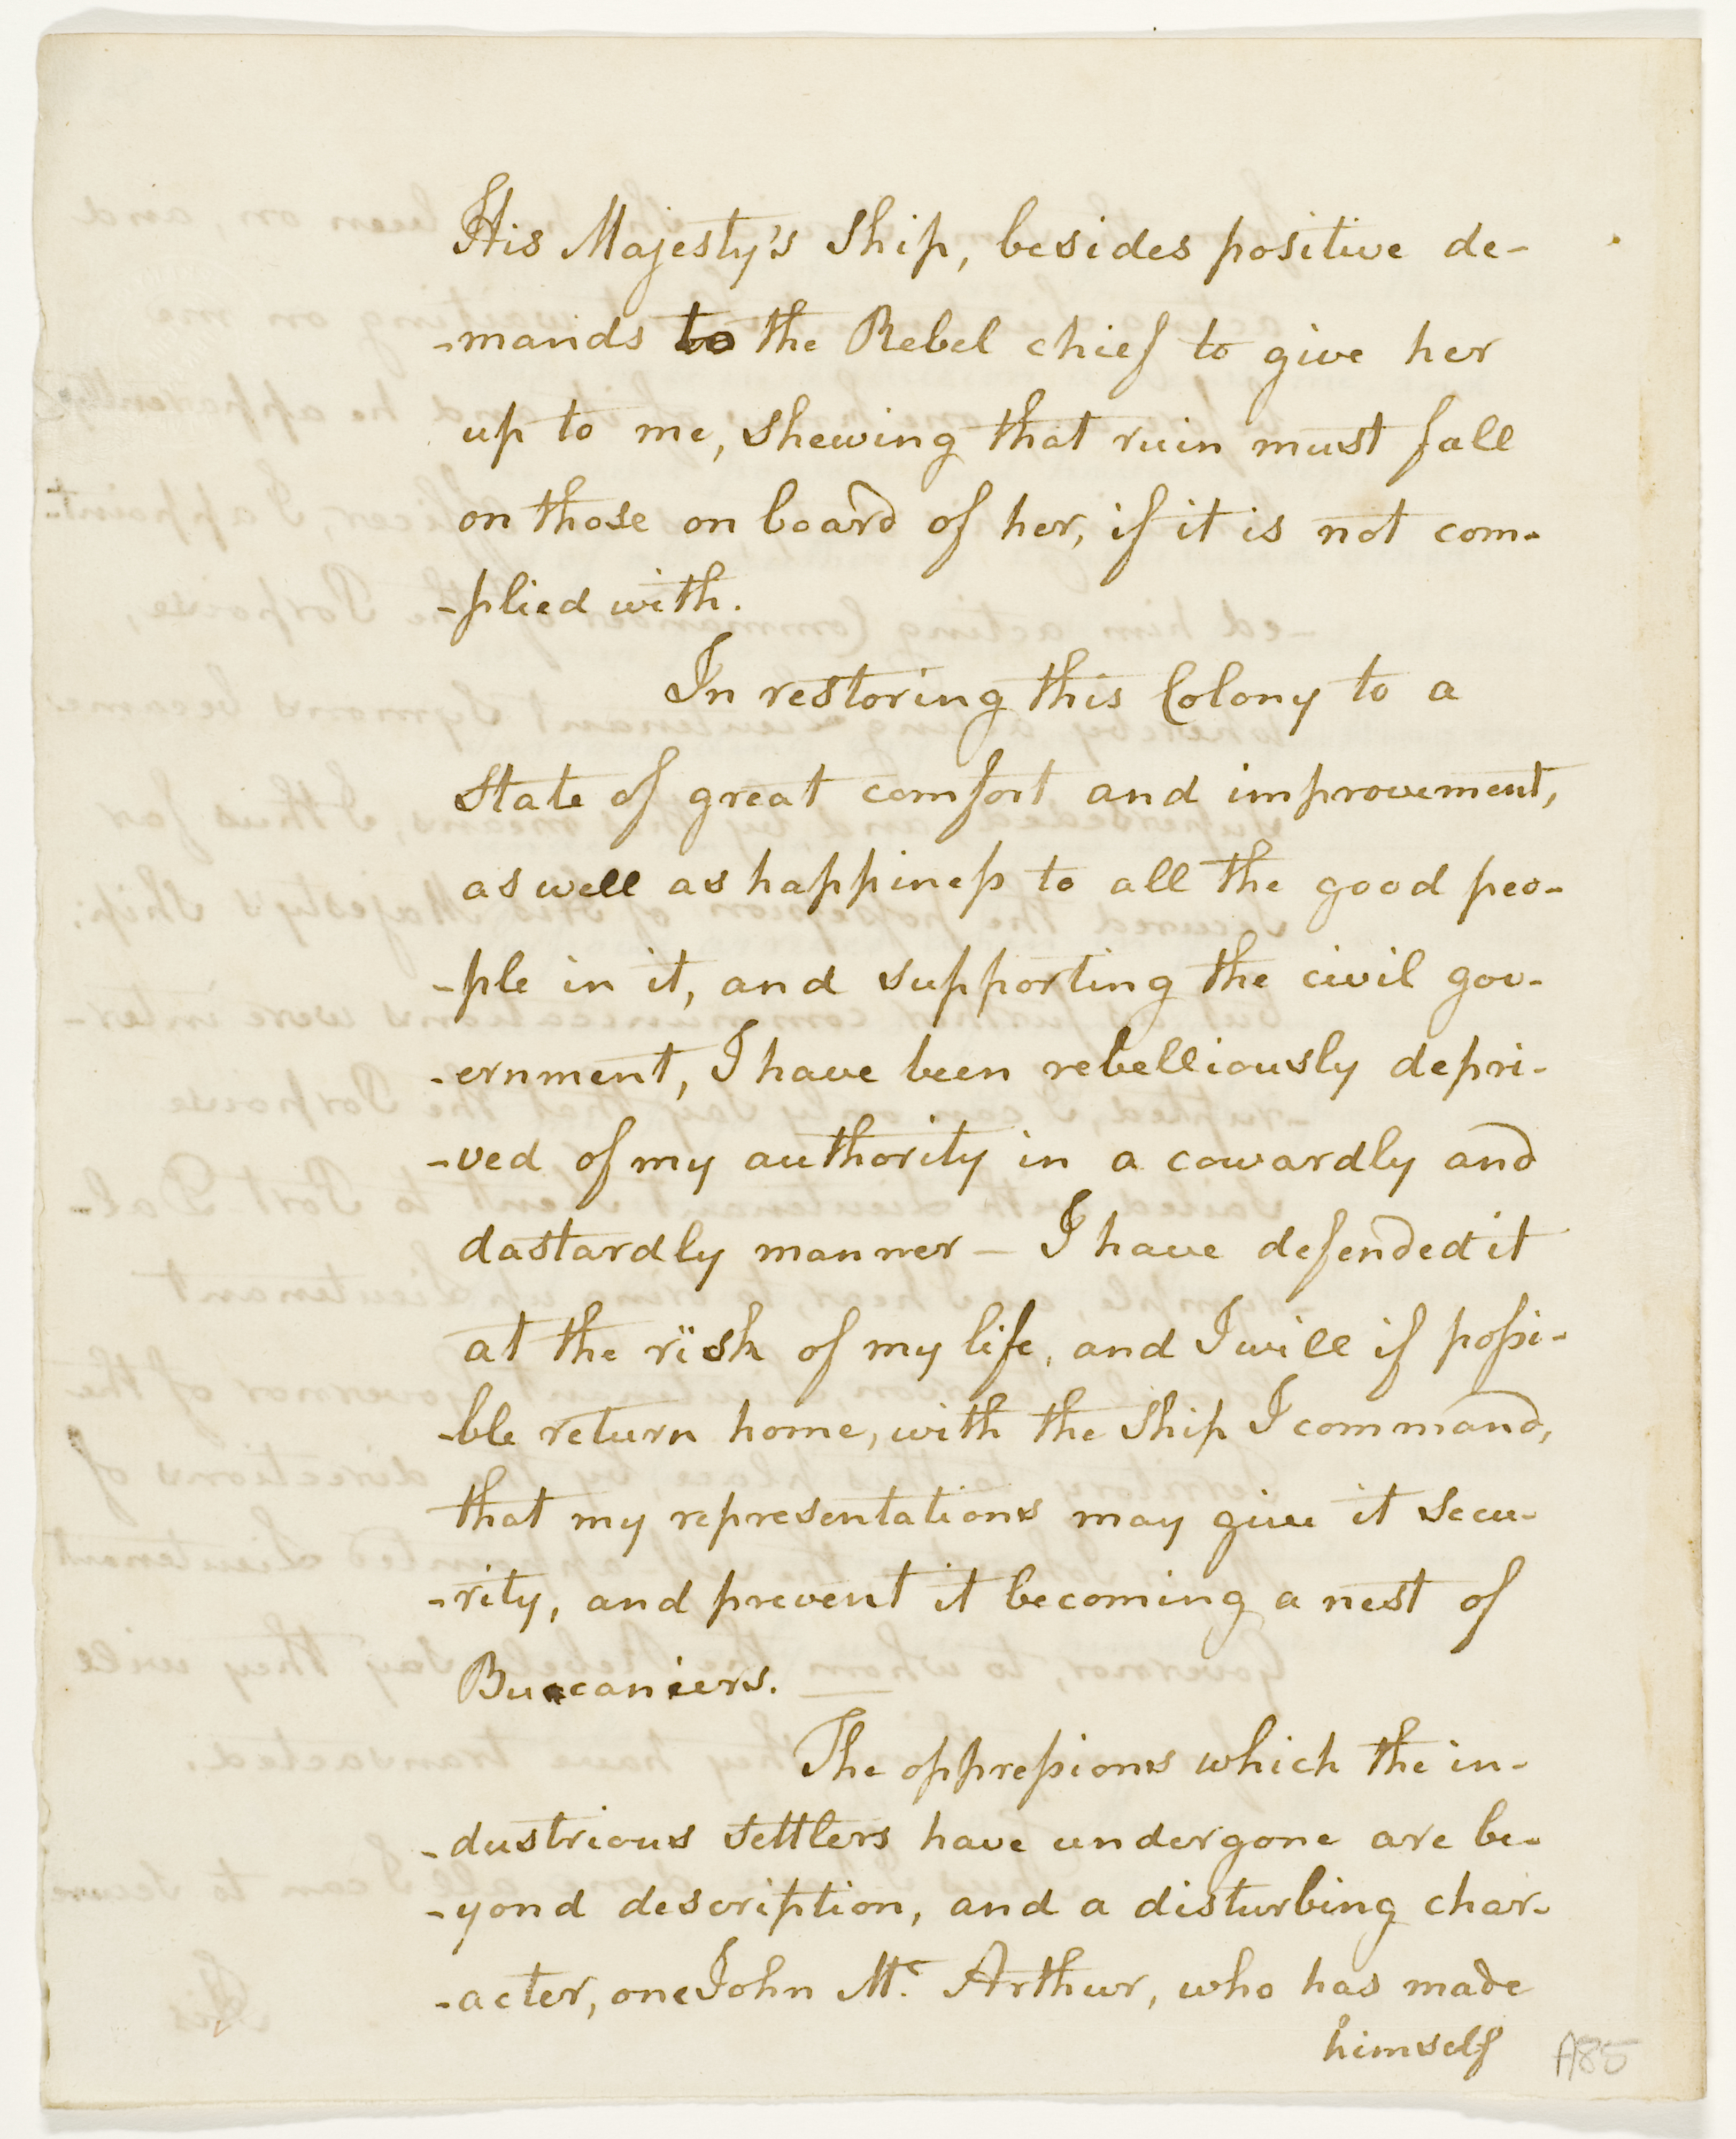 His Majesty's Ship, besides positive de-
-mands to the Rebel chief to give her
up to me, shewing that ruin must fall
on those on board of her, if it is not com-
-plied with.
In restoring this Colony to a
State of great comfort and improvement,
as well as happineſs to all the good peo-
-ple in it, and supporting the civil gov-
-ernment, I have been rebelliously depri-
-ved of my authority in a cowardly and
dastardly manner — I have defended it
at the risk of my life, and I will if poſsi-
-ble return home, with the Ship I command,
that my representations may give it secu-
-rity, and prevent it becoming a nest of
Buccaniers. —
The oppreſsions which the in-
-dustrious settlers have undergone are be-
-yond description, and a disturbing char-
-acter, one John Mc. Arthur, who has made
himself
A85